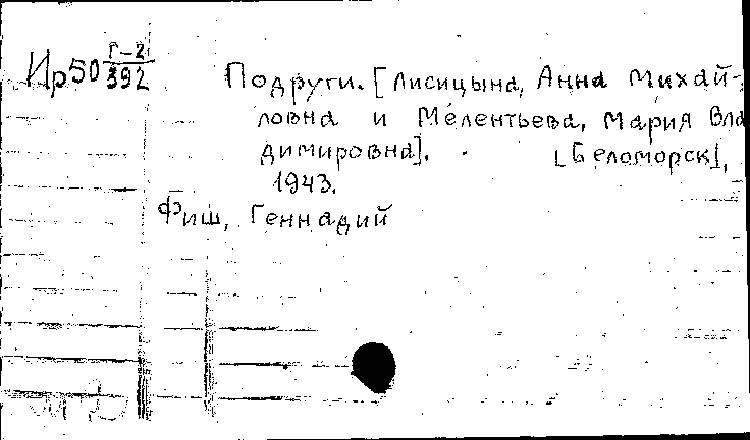 Ир50 Г-2/392
Подруги. [Лисицына, Анна Михай-
ловна и Мелентьева, Мария Вла
димировна]. [Беломорск],
1943.
Фиш, Геннадий